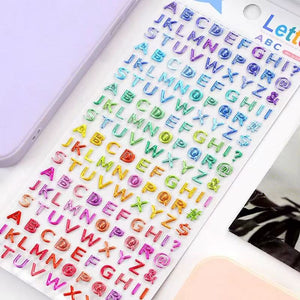 Lett
ABC
ABCDEFGHI!
JKLMNOPQR@
STUVWXYZ&
ABCDEFGHI?
JKLMNOPQR@
STUVWXYZ&
ABCDEFGHI!
JKLMNOPQR@
STUVWXYZ&
ABCDEFGHI?
JKLMNOPQR@
STUVWXYZ&
ABCDEFGHI!
JKLMNOPQR@
STUVWXYZ&
ABCDEFGHI?
JKLMNOPQR@
STUVWXYZ&